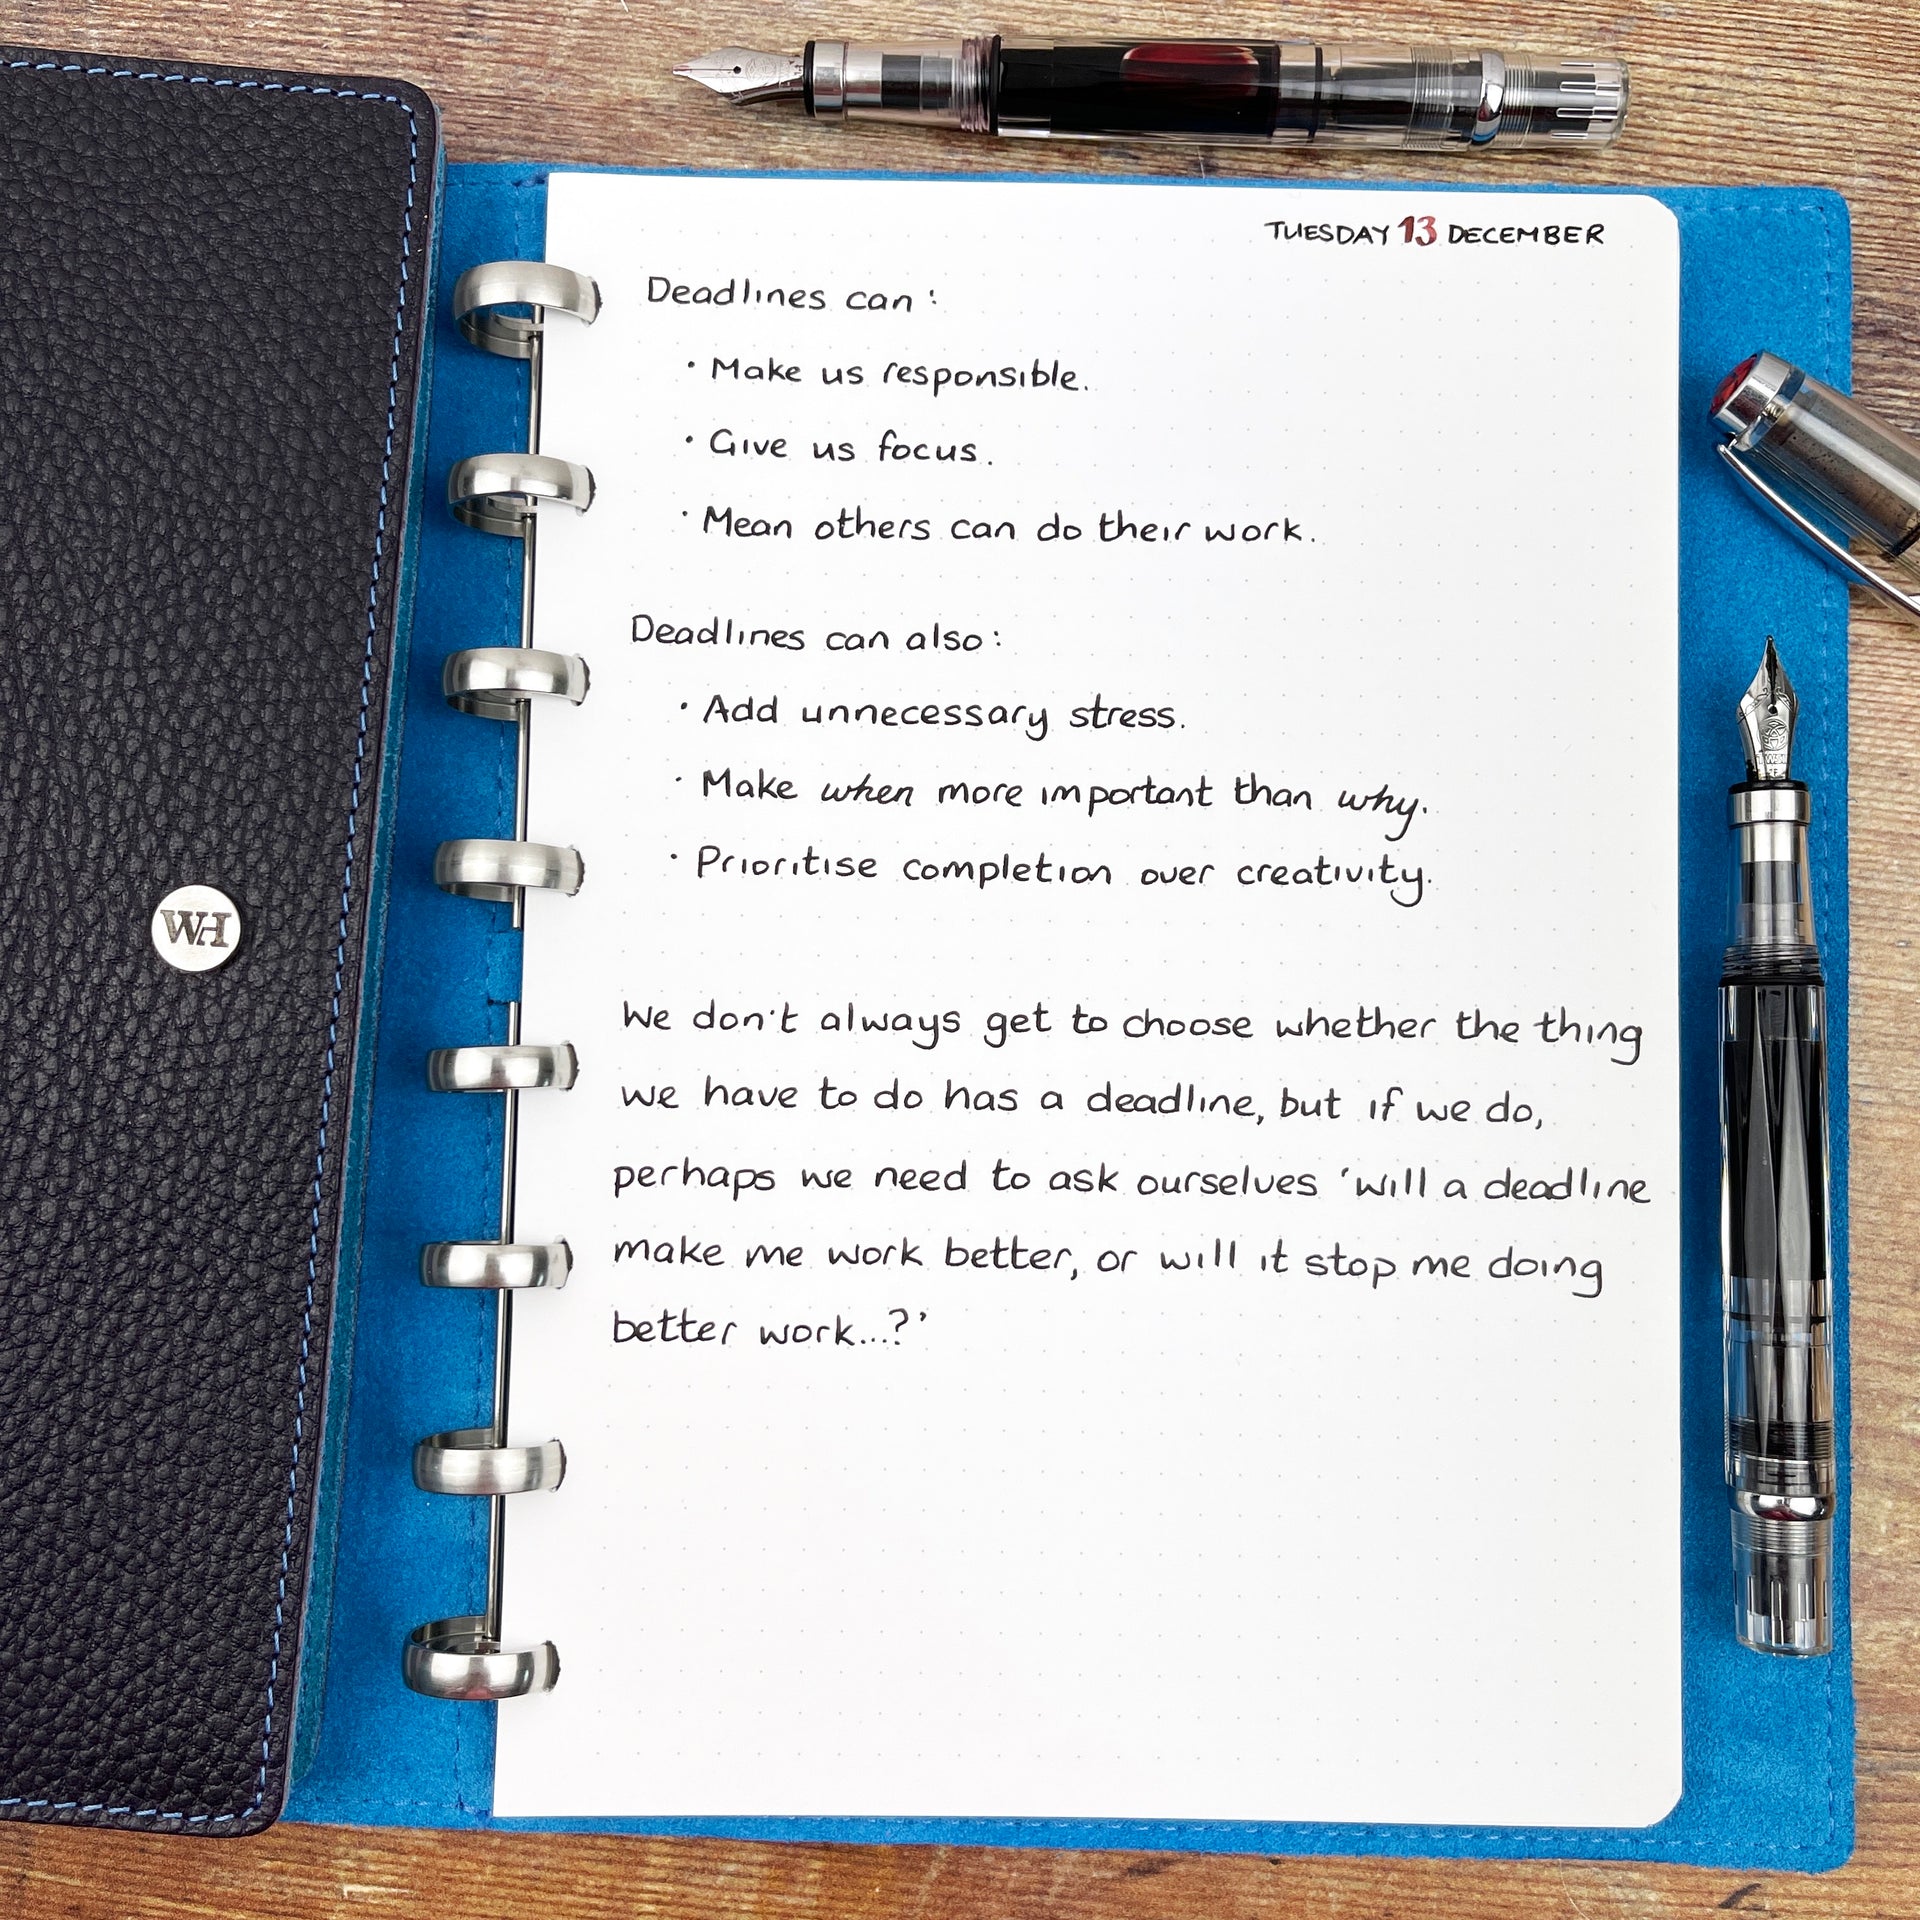 TUESDAY 13 DECEMBER
Deadlines can:
• Make us responsible.
• Give us focus.
• Mean others can do their work.
Deadlines can also:
• Add unnecessary stress.
• Make when more important than why.
• Prioritise completion over creativity.
We don't always get to choose whether the thing
we have to do has a deadline, but if we do,
perhaps we need to ask ourselves 'will a deadline
make me work better, or will it stop me doing
better work...?'
WH